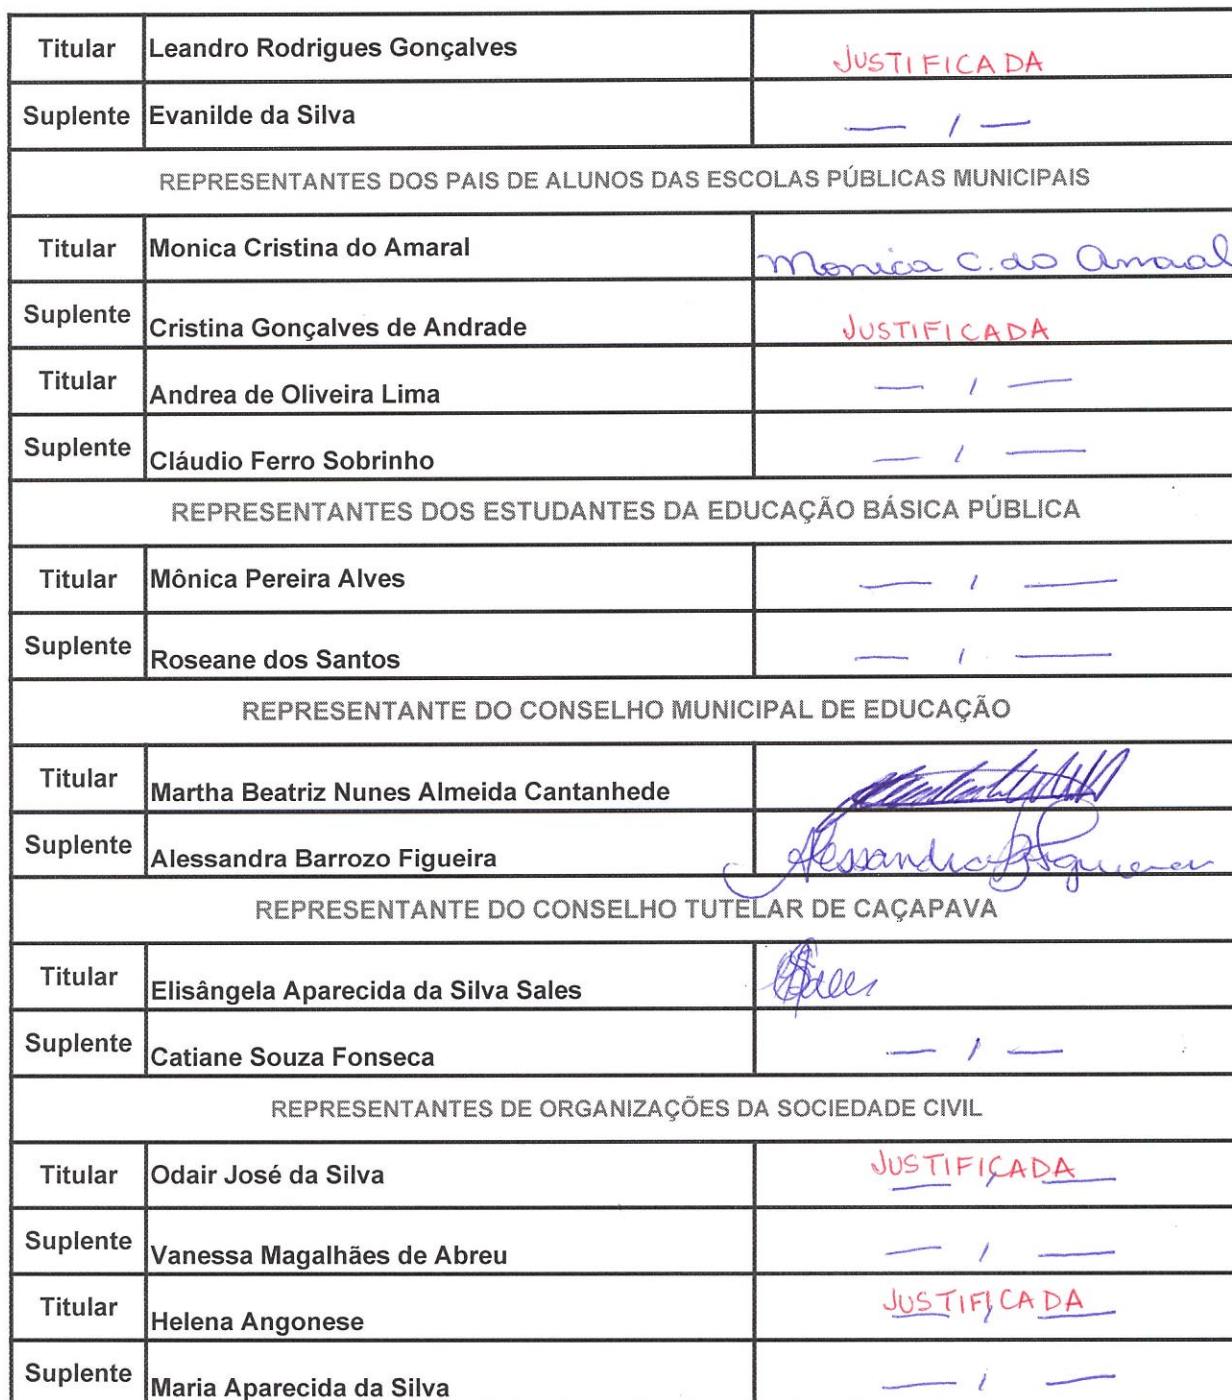 Titular Leandro Rodrigues Gonçalves JUSTIFICADA
Suplente Evanilde da Silva — / —
REPRESENTANTES DOS PAIS DE ALUNOS DAS ESCOLAS PÚBLICAS MUNICIPAIS
Titular Monica Cristina do Amaral Monica C. do Amaral
Suplente Cristina Gonçalves de Andrade JUSTIFICADA
Titular Andrea de Oliveira Lima — / —
Suplente Cláudio Ferro Sobrinho — / —
REPRESENTANTES DOS ESTUDANTES DA EDUCAÇÃO BÁSICA PÚBLICA
Titular Mônica Pereira Alves — / —
Suplente Roseane dos Santos — / —
REPRESENTANTE DO CONSELHO MUNICIPAL DE EDUCAÇÃO
Titular Martha Beatriz Nunes Almeida Cantanhede
Suplente Alessandra Barrozo Figueira Alessandra B Figueira
REPRESENTANTE DO CONSELHO TUTELAR DE CAÇAPAVA
Titular Elisângela Aparecida da Silva Sales
Suplente Catiane Souza Fonseca — / —
REPRESENTANTES DE ORGANIZAÇÕES DA SOCIEDADE CIVIL
Titular Odair José da Silva JUSTIFICADA
Suplente Vanessa Magalhães de Abreu — / —
Titular Helena Angonese JUSTIFICADA
Suplente Maria Aparecida da Silva — / —